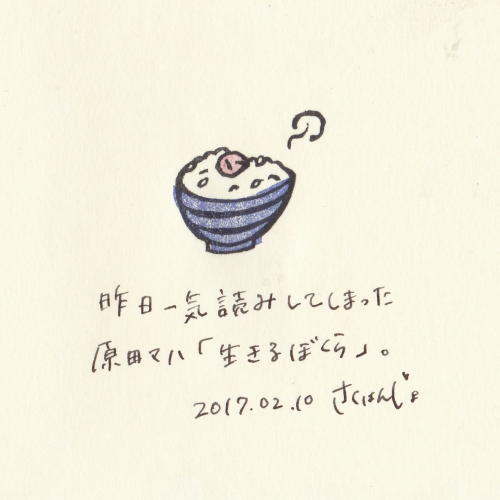 昨日一気読みしてしまった
原田マハ「生きるぼくら」。
2017.02.10 さくはんじょ